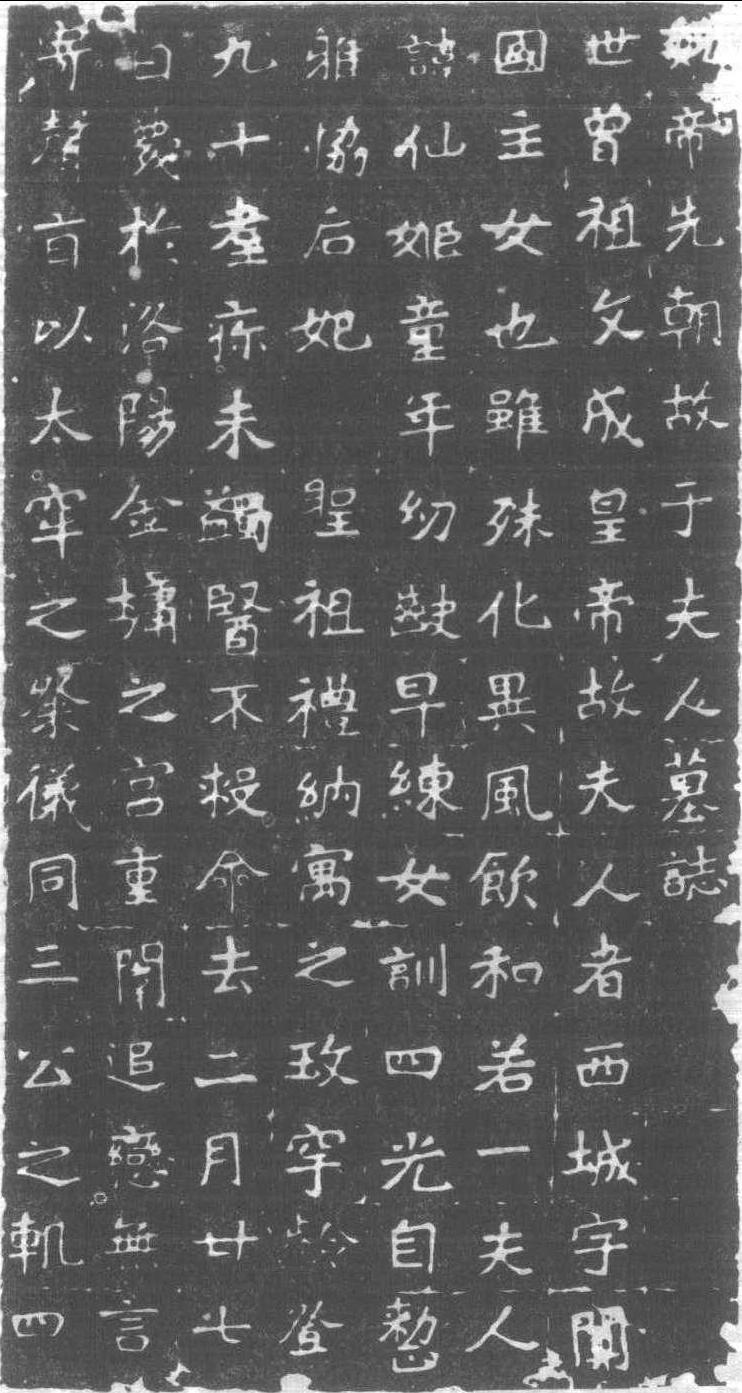 魏帝先朝故于夫人墓誌
世曾祖文成皇帝故夫人者西城宇闐
國主女也雖殊化異風飲和若一夫人
諱仙姬童年幼早練女訓四光自整
雅協后妃 聖祖禮納寓之玫宇齡登
九十耋疹未蠲醫不救命去二月廿七
日薨於洛陽金墉之宮重闈追戀無言
聲旨以太牢之祭儀同三公之軌四